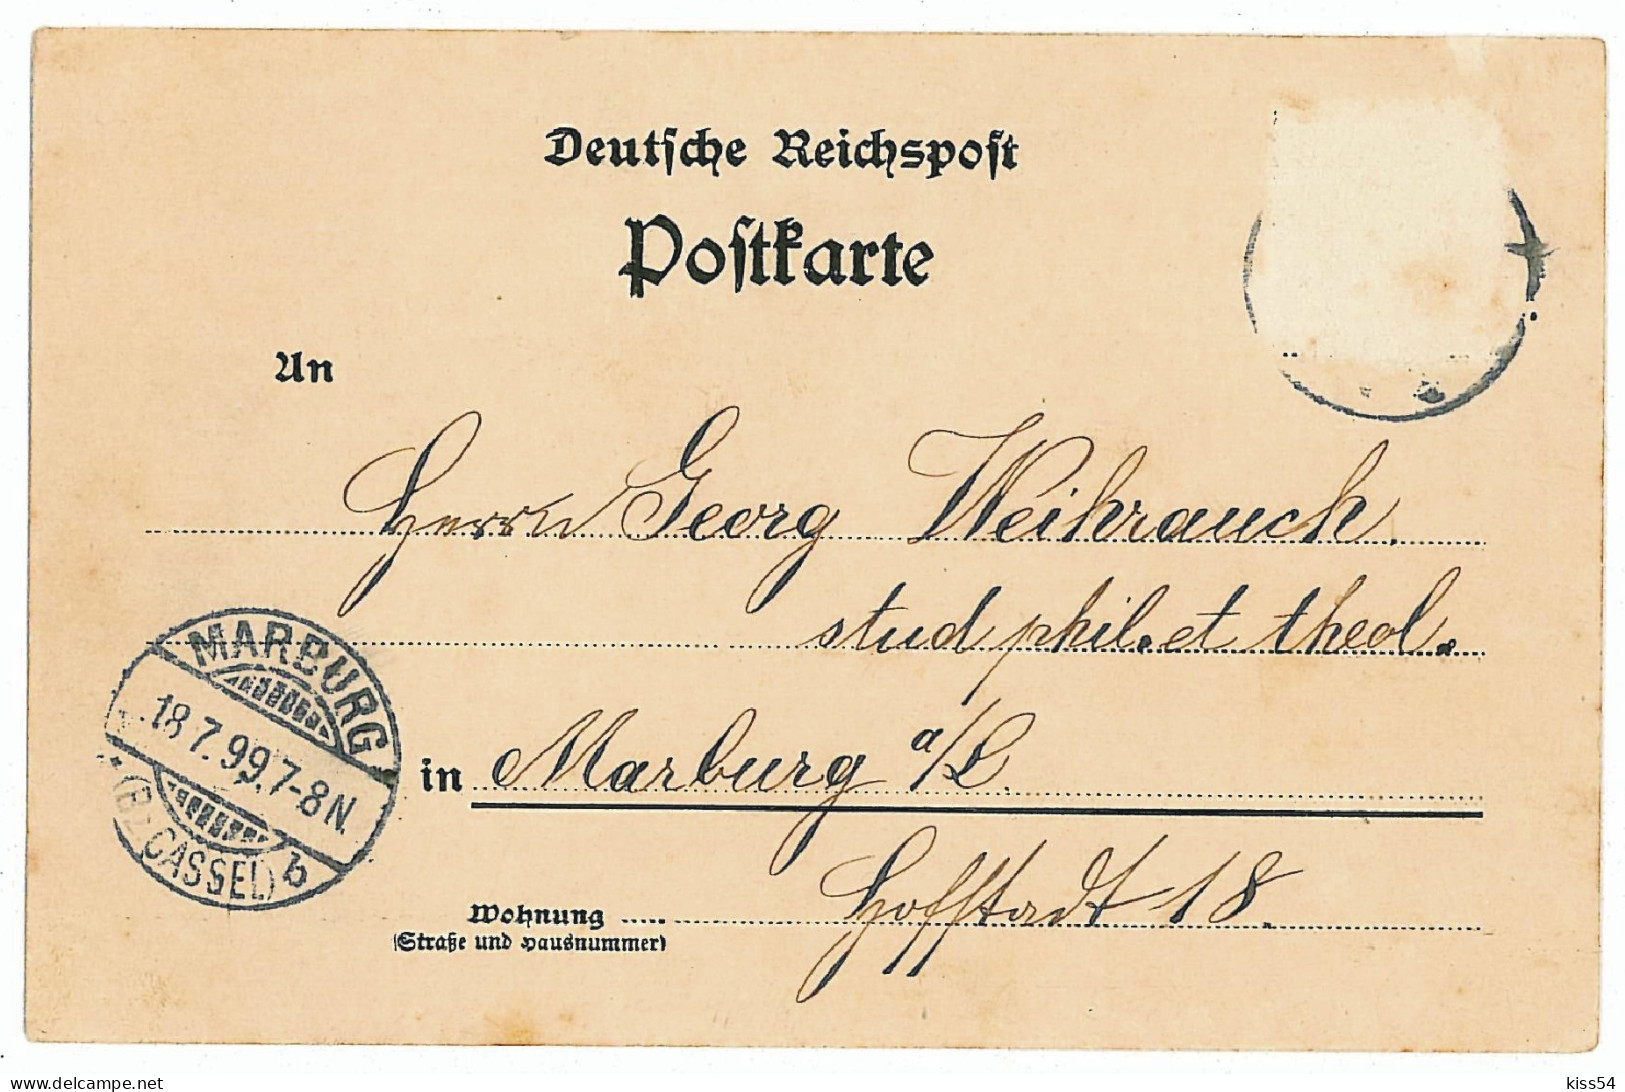 Deutsche Reichspost
Postkarte
An
Herrn Georg Weihrauch.
stud phil. et theol.
in Marburg a/L.
Hofstadt 18.
Wohnung
(Straße und Hausnummer)
MARBURG
18.7.99.7-8N.
(BZ CASSEL) b
delcampe.net
kiss54